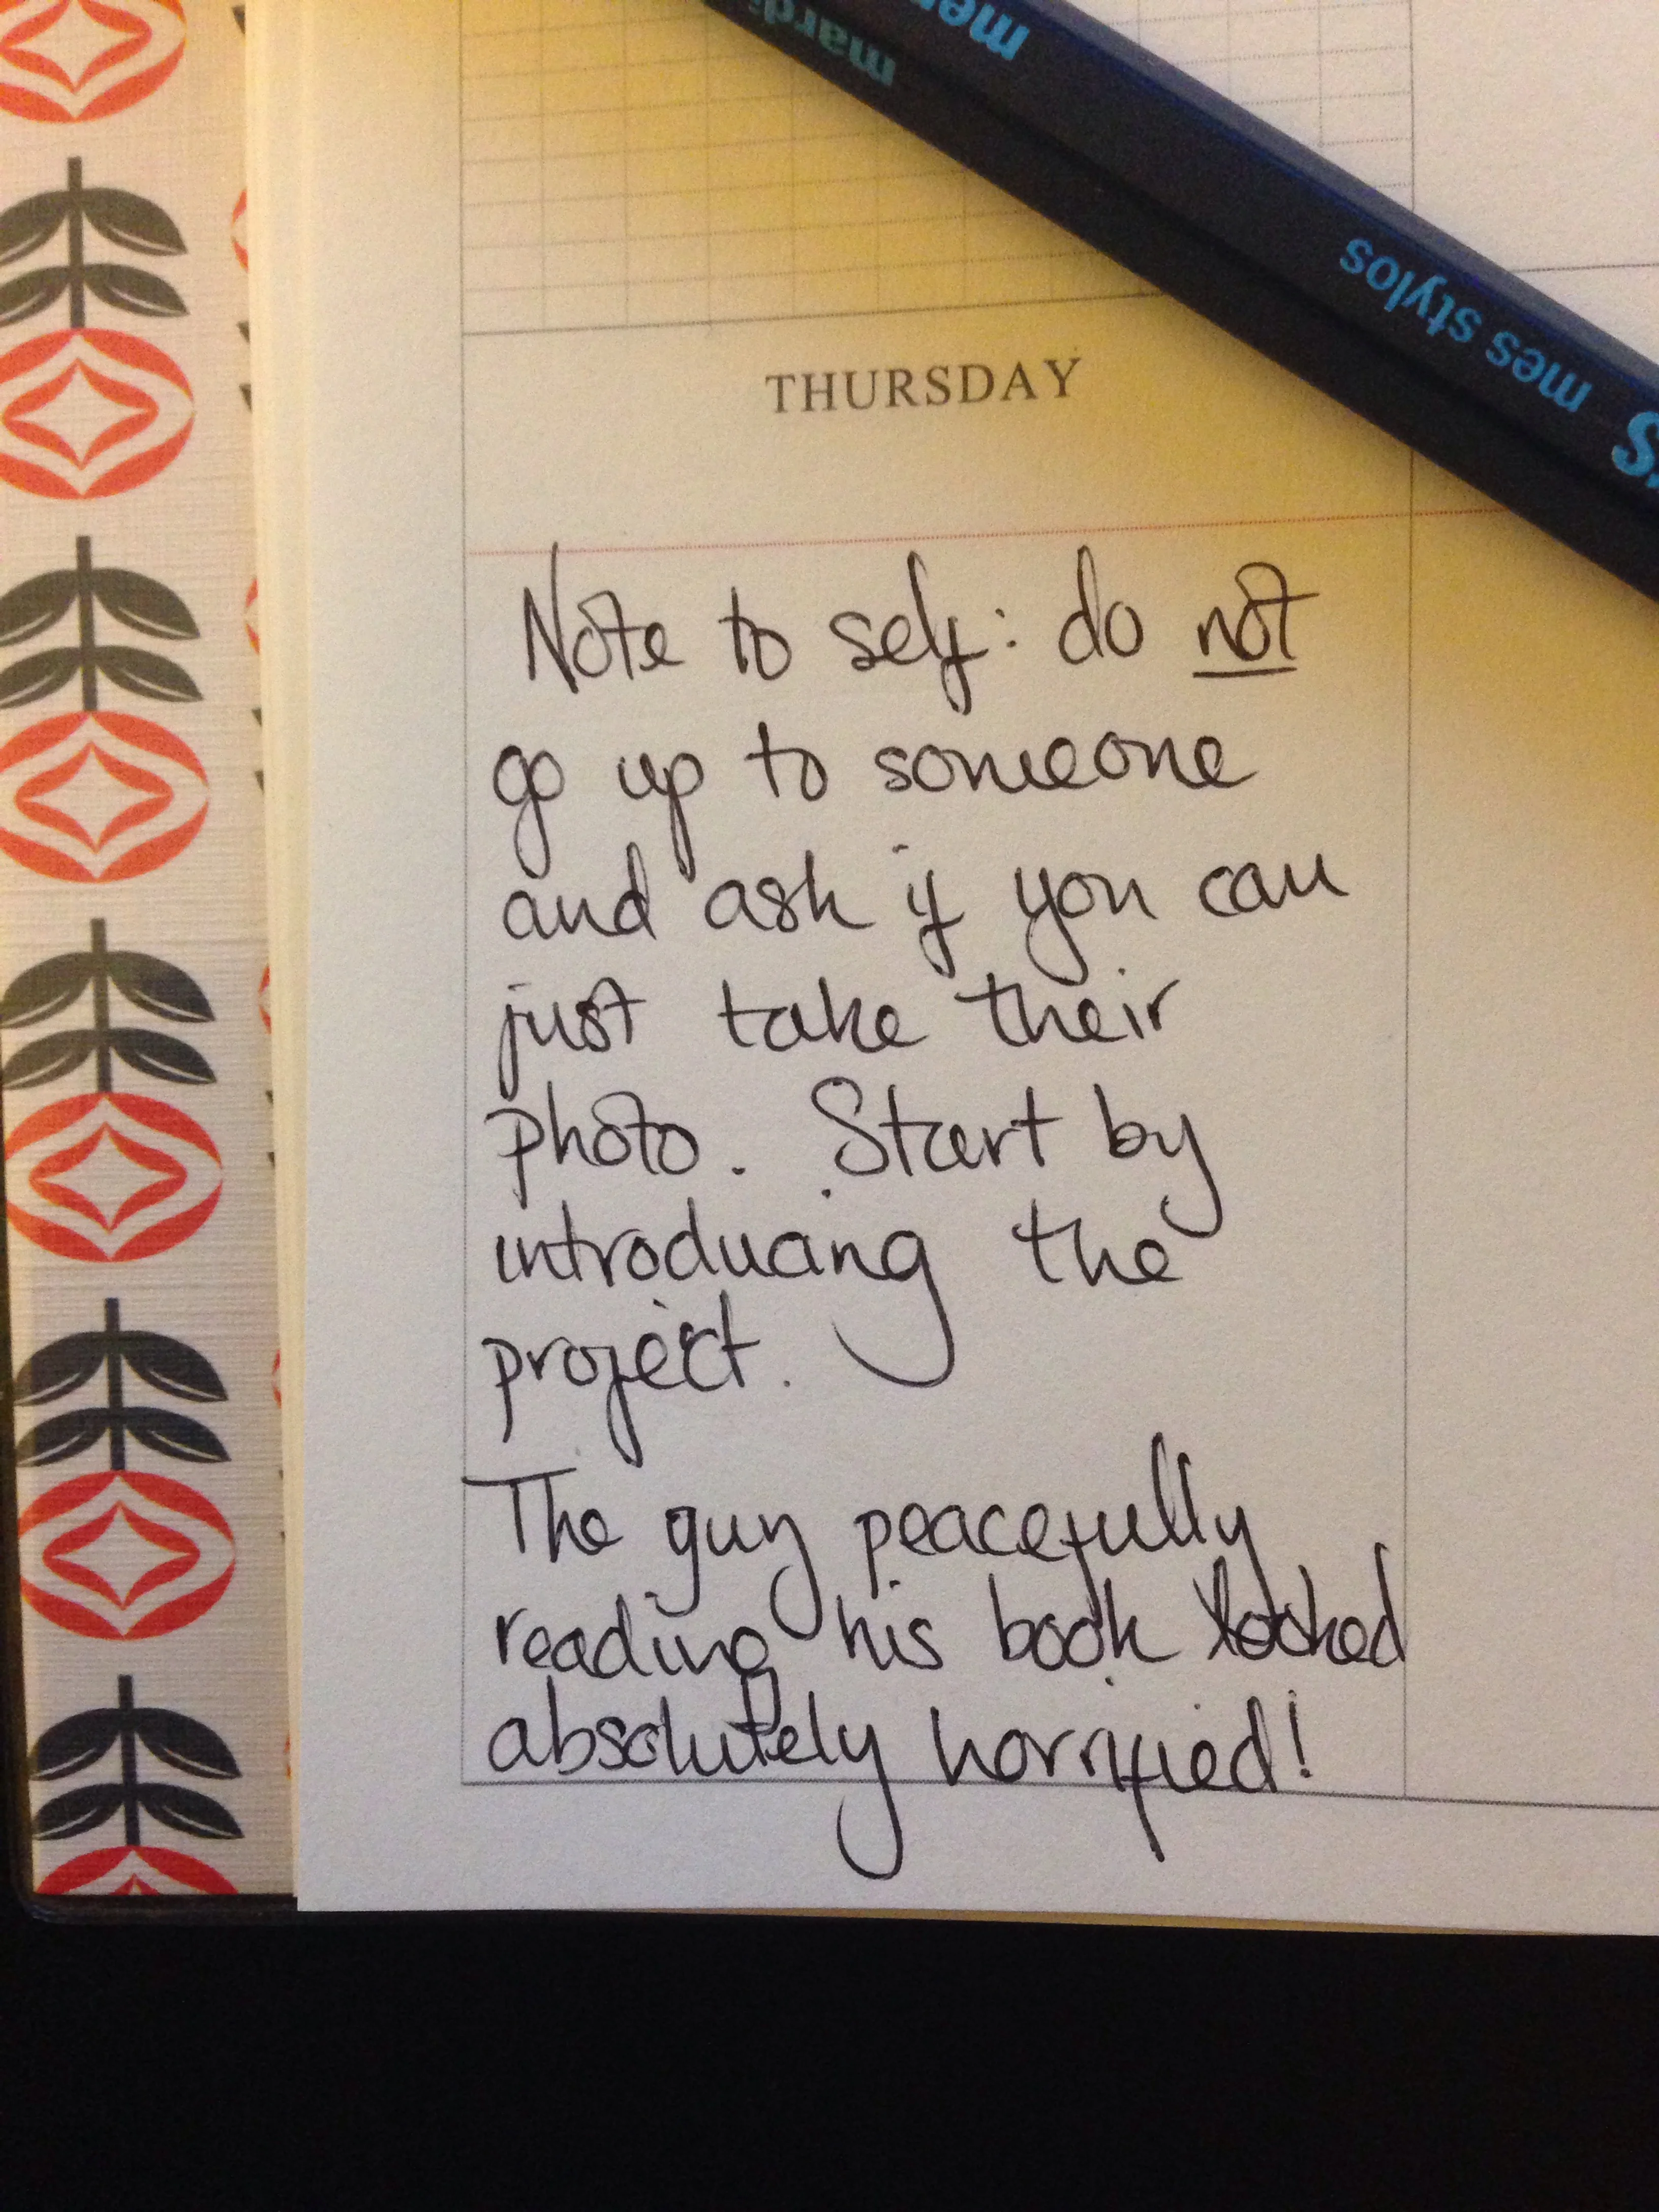 mardi
mer
mes stylos
s
THURSDAY
Note to self: do not
go up to someone
and ask if you can
just take their
photo. Start by
introducing the
project.
The guy peacefully
reading his book looked
absolutely horrified!